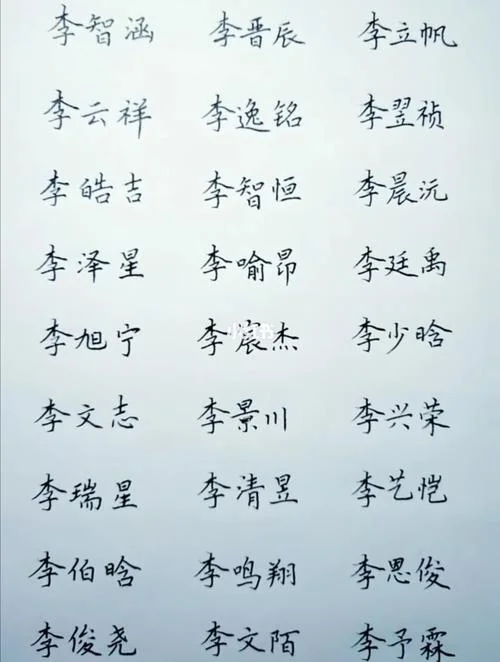 李智涵 李晋辰 李立帆
李云祥 李逸铭 李翌祯
李皓吉 李智恒 李晨沅
李泽星 李喻昂 李廷禹
李旭宁 李宸杰 李少晗
李文志 李景川 李兴荣
李瑞星 李清昱 李艺恺
李伯晗 李鸣翔 李思俊
李俊尧 李文陌 李予霖